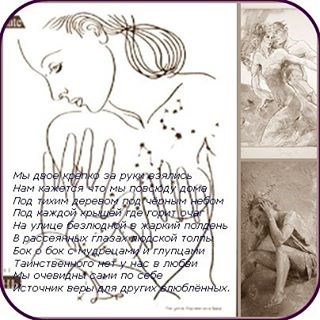 Мы двое крепко за руки взялись
Нам кажется что мы повсюду дома
Под тихим деревом под черным небом
Под каждой крышей где горит очаг
На улице безлюдной в жаркий полдень
В рассеянных глазах людской толпы
Бок о бок с мудрецами и глупцами
Таинственного нет у нас в любви
Мы очевидны сами по себе
Источник веры для других влюблённых.